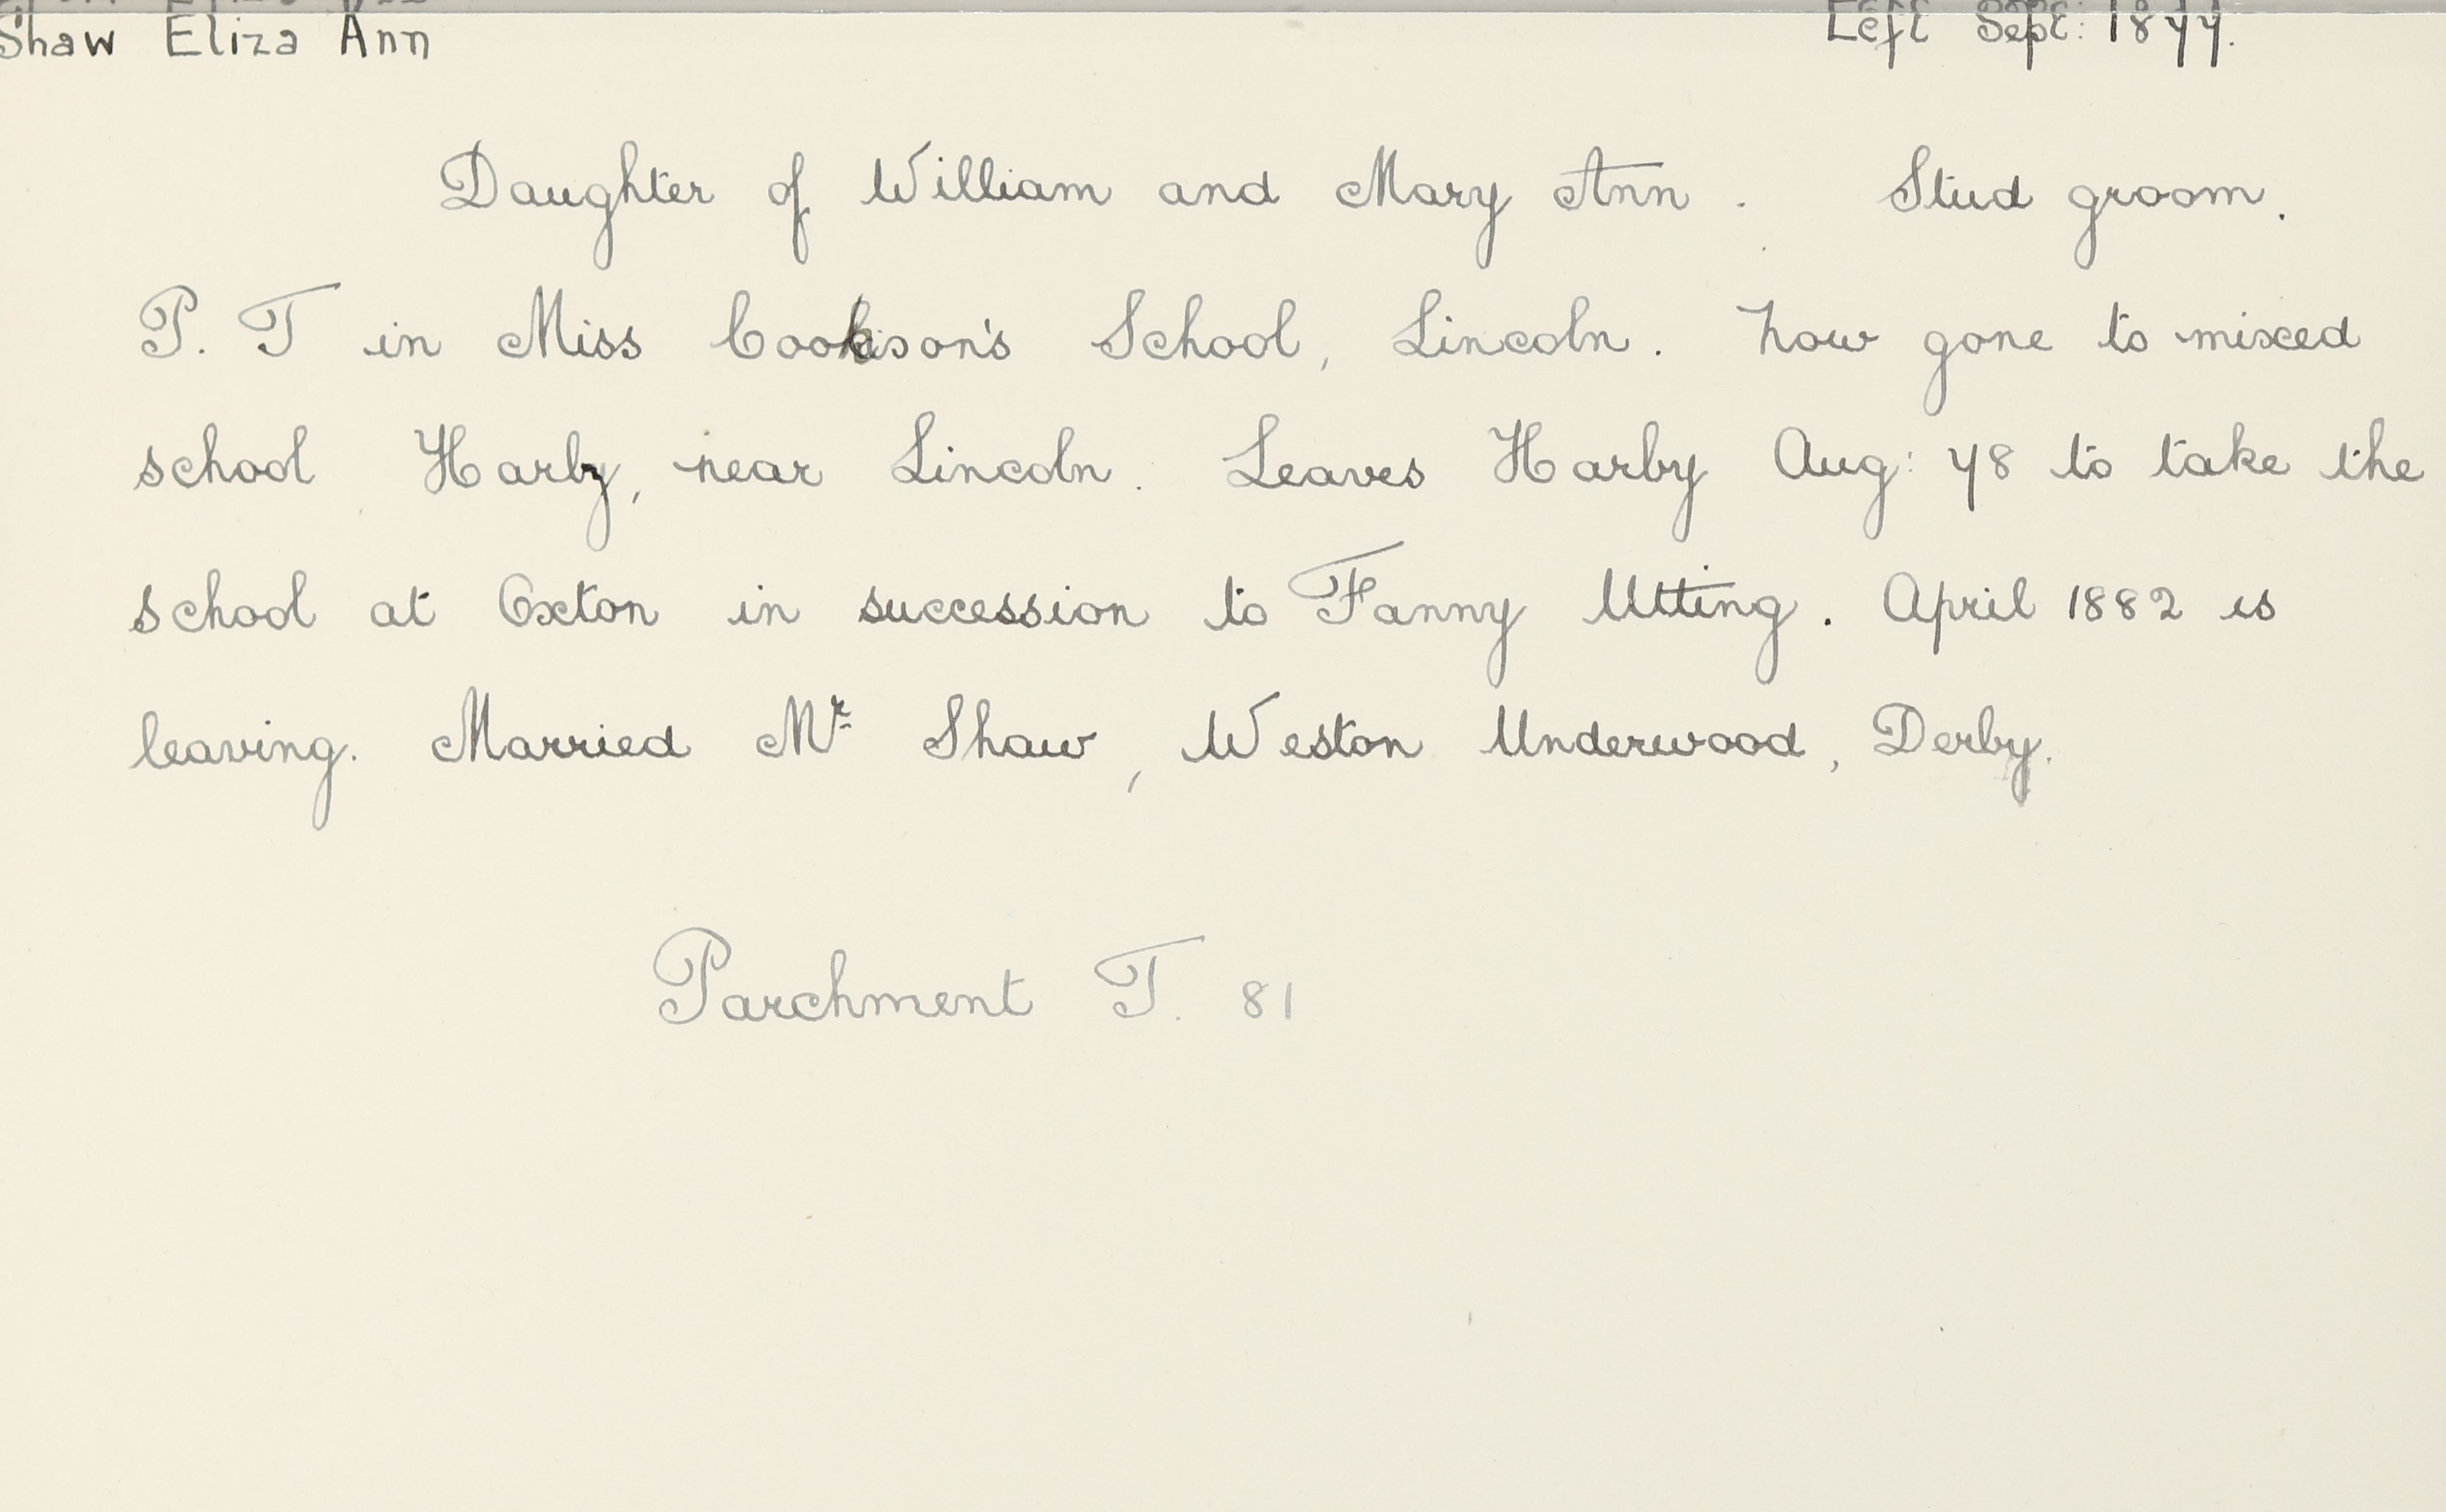 Shaw Eliza Ann Left Sept: 1877.
Daughter of William and Mary Ann. Stud groom.
P. T in Miss Cookson's School, Lincoln. Now gone to mixed
school Harby, near Lincoln. Leaves Harby Aug: 78 to take the
school at Oxton in succession to Fanny Utting. April 1882 is
leaving. Married Mr Shaw, Weston Underwood, Derby.
Parchment T. 81